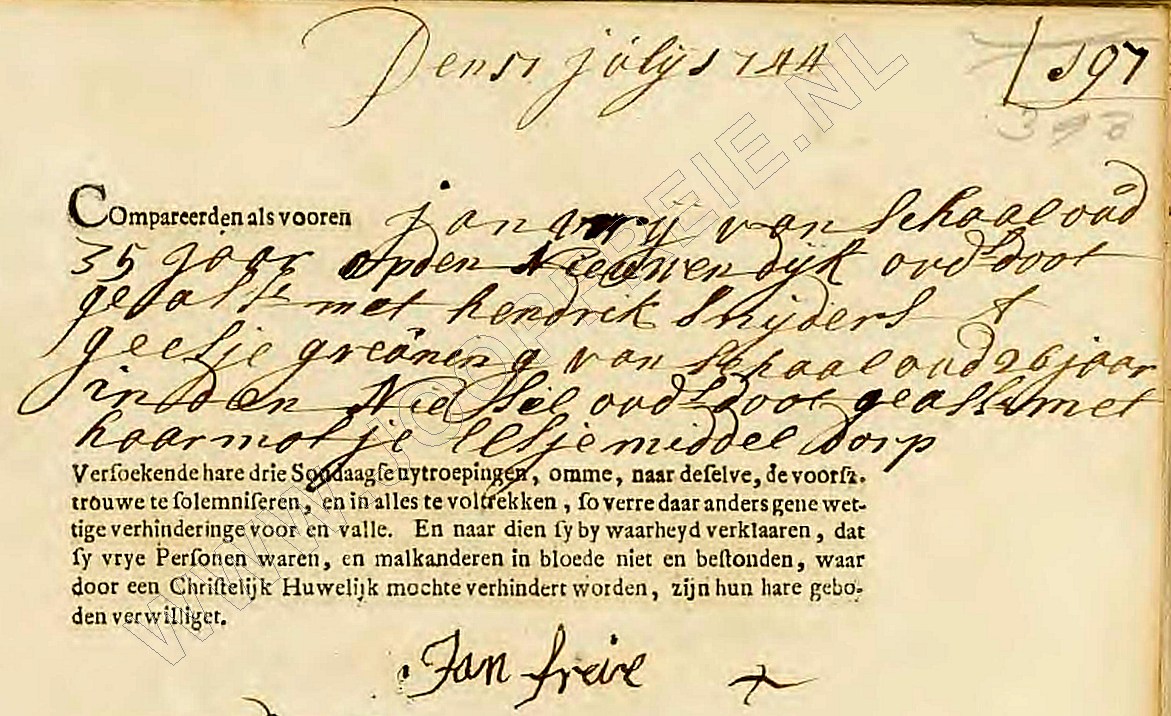 Den 17 julij 1744
197
398
Compareerden als vooren jan vrij van Schaal oud
35 jaar op den Nieuwen dijk oud's doot
geass't met hendrik Snijders &
geesje greuning van Schaal oud 26 jaar
in den Nes Stil oud's doot geast met
haar motje Elsje middel dorp
Versoekende hare drie Sondaagse uytroepingen, omme, naar deselve, de voorsz.
trouwe te solemniseren, en in alles te voltrekken, so verre daar anders gene wet-
tige verhinderinge voor en valle. En naar dien sy by waarheyd verklaaren, dat
sy vrye Personen waren, en malkanderen in bloede niet en bestonden, waar
door een Christelijk Huwelijk mochte verhindert worden, zijn hun hare gebo-
den verwilliget.
Jan freie
WWW.JOOPFREIE.NL